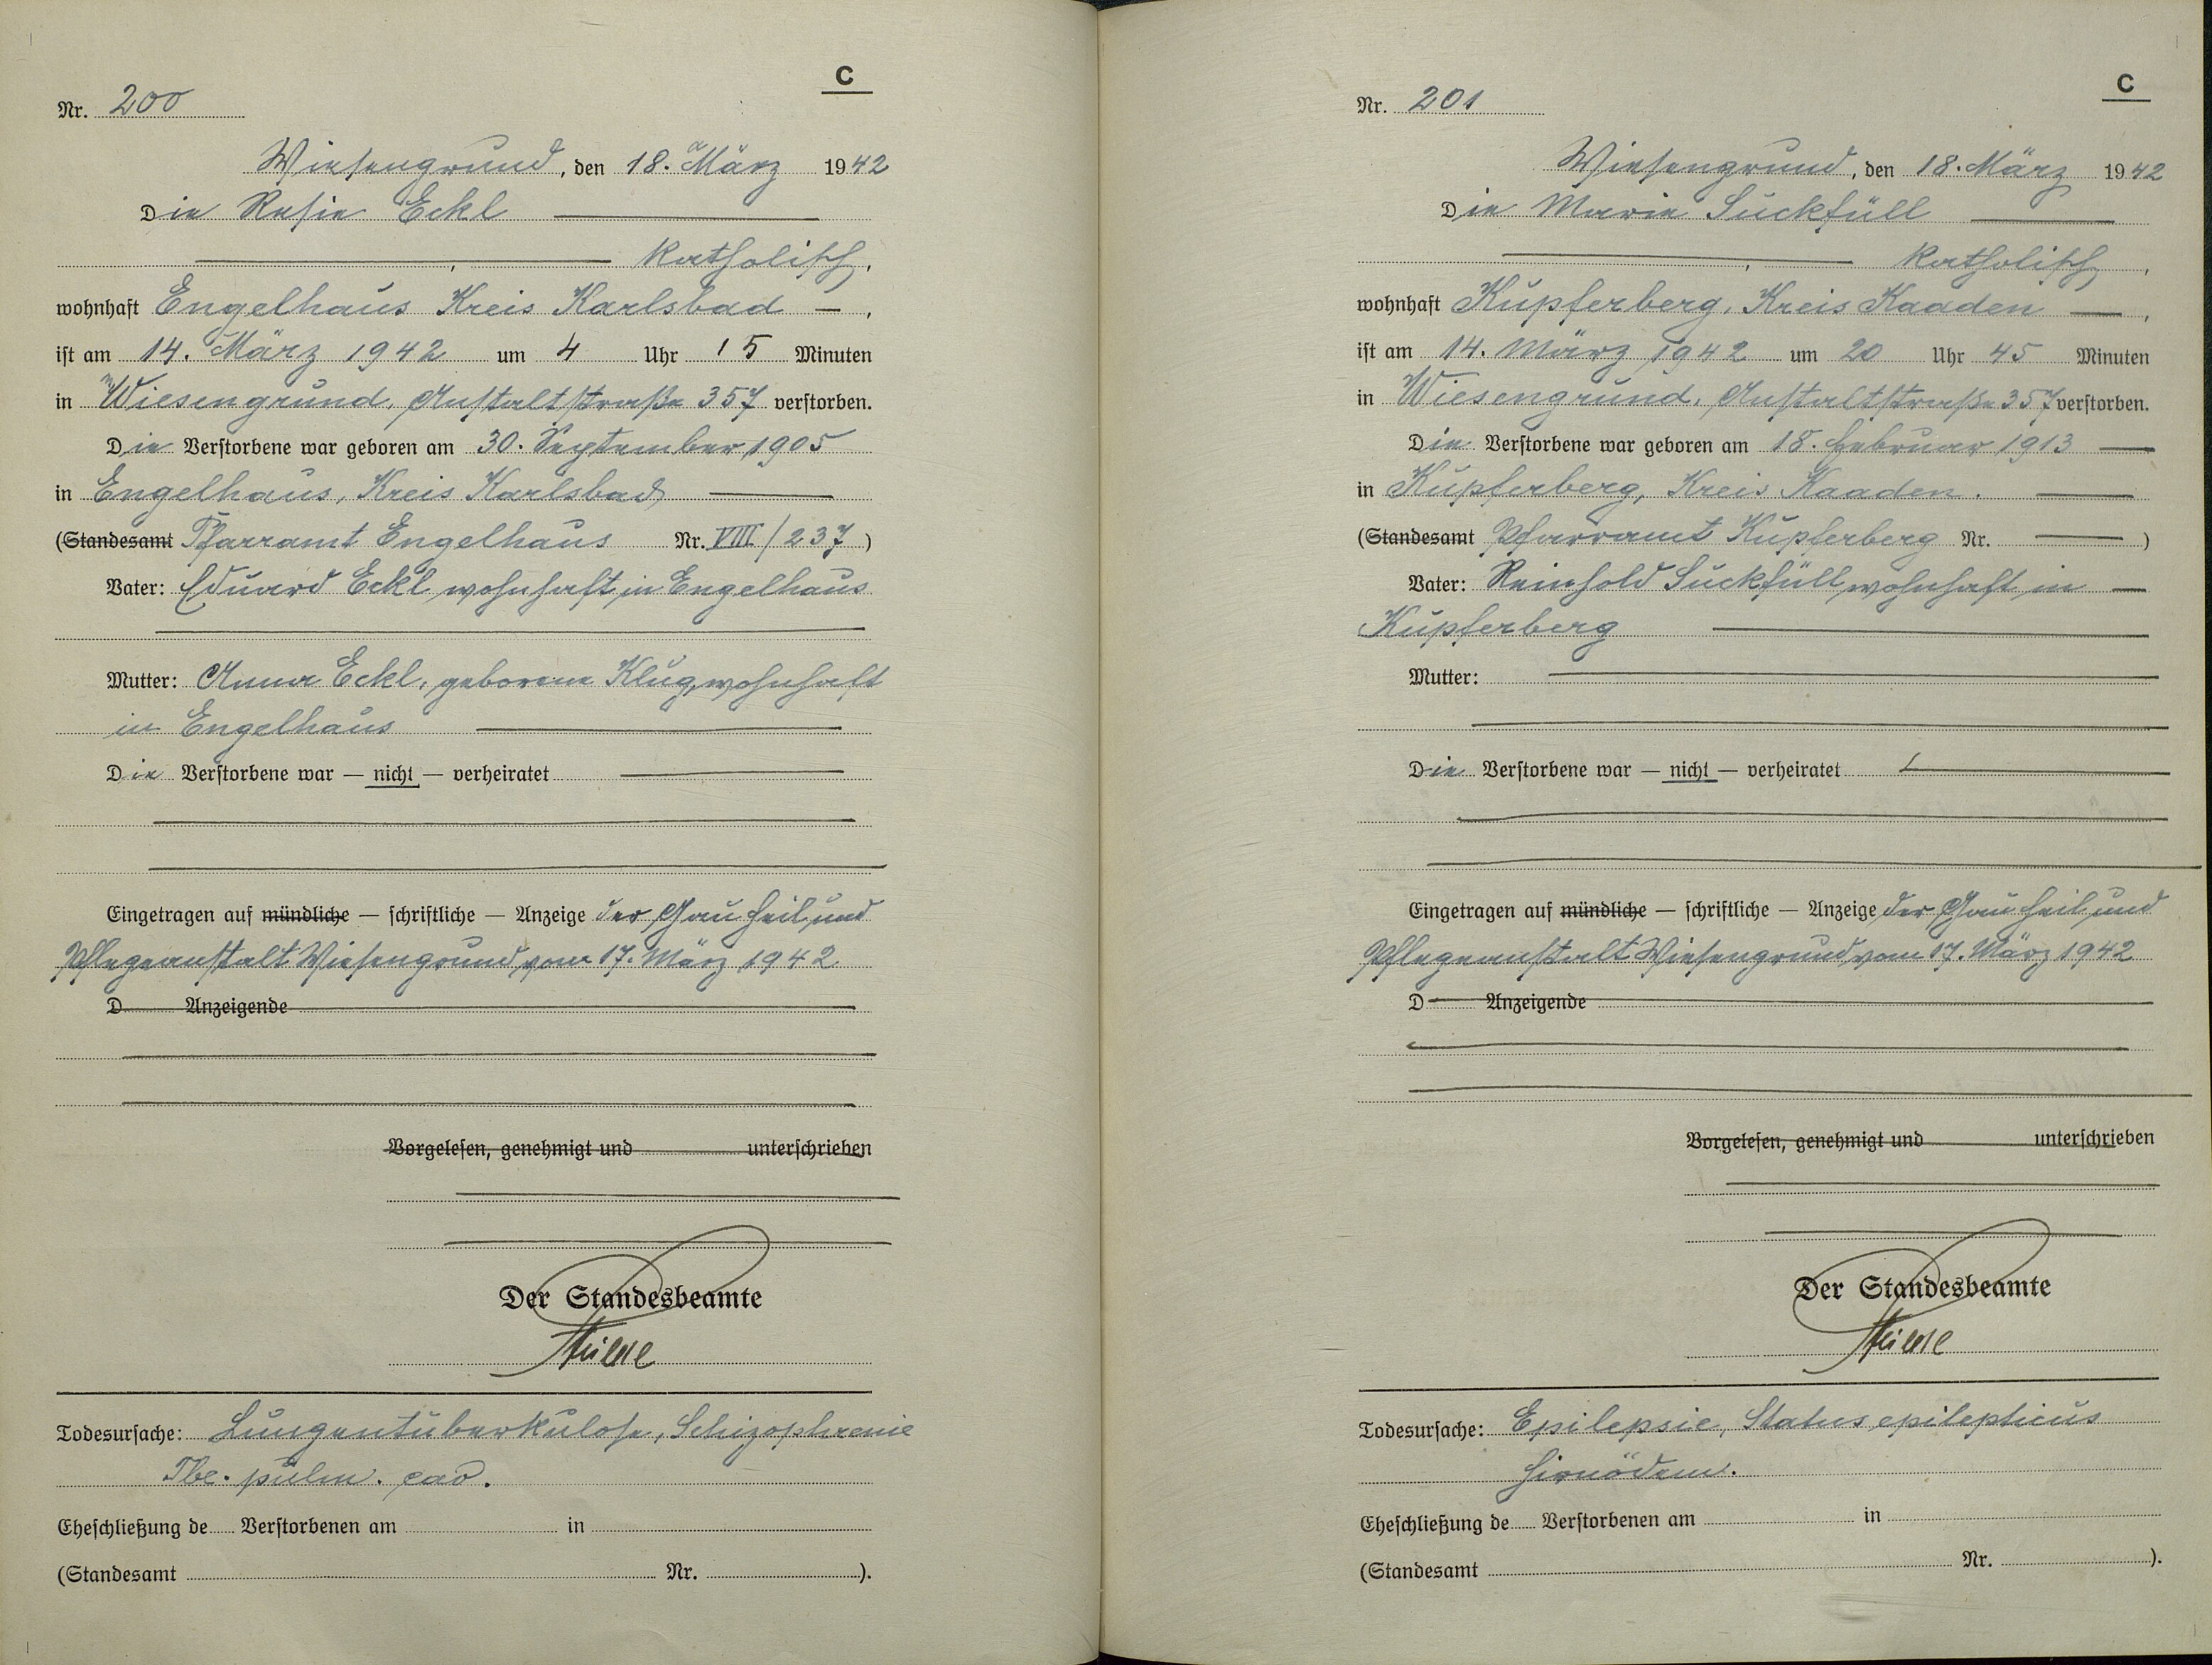 C
Nr. 200
Wiesengrund, den 18. März 1942
Die Resie Eckl
katholisch,
wohnhaft Engelhaus Kreis Karlsbad,
ist am 14. März 1942 um 4 Uhr 15 Minuten
in Wiesengrund, Anstaltstraße 357 verstorben.
Die Verstorbene war geboren am 30. September 1905
in Engelhaus, Kreis Karlsbad
(Standesamt Pfarramt Engelhaus Nr. VIII/237)
Vater: Eduard Eckl, wohnhaft in Engelhaus
Mutter: Anna Eckl, geborene Klug, wohnhaft
in Engelhaus
Die Verstorbene war — nicht — verheiratet
Eingetragen auf mündliche — schriftliche — Anzeige der Gau heil und
Pflegeanstalt Wiesengrund vom 17. März 1942
D Anzeigende
Vorgelesen, genehmigt und unterschrieben
Der Standesbeamte
Todesursache: Lungentuberkulose, Schizophrenie
Tbc. pulm. cav.
Eheschließung de Verstorbenen am in
(Standesamt Nr. ).
C
Nr. 201
Wiesengrund, den 18. März 1942
Die Marie Suckfüll
katholisch,
wohnhaft Kupferberg, Kreis Kaaden,
ist am 14. März 1942 um 20 Uhr 45 Minuten
in Wiesengrund, Anstaltstraße 357 verstorben.
Die Verstorbene war geboren am 18. Februar 1913
in Kupferberg, Kreis Kaaden.
(Standesamt Pfarramt Kupferberg Nr. )
Vater: Reinhold Suckfüll, wohnhaft in
Kupferberg
Mutter:
Die Verstorbene war — nicht — verheiratet
Eingetragen auf mündliche — schriftliche — Anzeige der Gau heil und
Pflegeanstalt Wiesengrund vom 17. März 1942
D Anzeigende
Vorgelesen, genehmigt und unterschrieben
Der Standesbeamte
Todesursache: Epilepsie, Status epilepticus
Hirnödem.
Eheschließung de Verstorbenen am in
(Standesamt Nr. ).